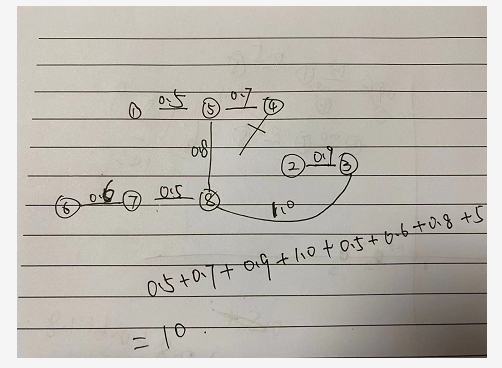 ① 0.5 ⑤ 0.7 ④
0.8
② 0.9 ③
⑥ 0.6 ⑦ 0.5 ⑧
1.0
0.5+0.7+0.9+1.0+0.5+0.6+0.8+5
=10.